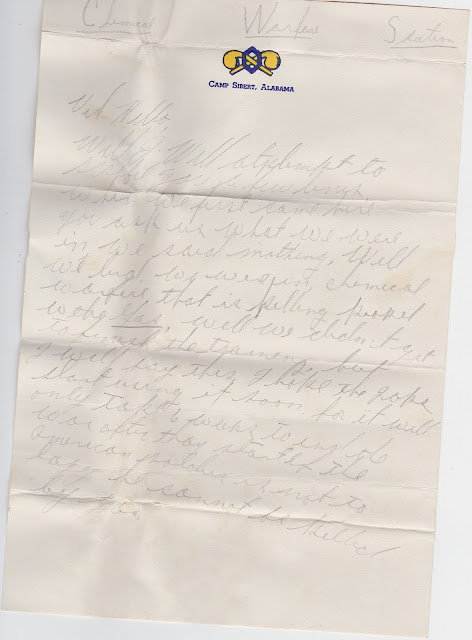 Chemical Warfare Station
CAMP SIBERT, ALABAMA
Well Will attempt to
you few lines
when we first came here
you ask us what we were
in, we said nothing, Well
we we were in chemical
warfare that is killing
with Gas, well we didn't get
to finish the but
I will say this I hope the Japs
start using it soon for it will
only take 6 weeks to end the
war after they start it the
american soldier is not to
he cannot be killed
by gas